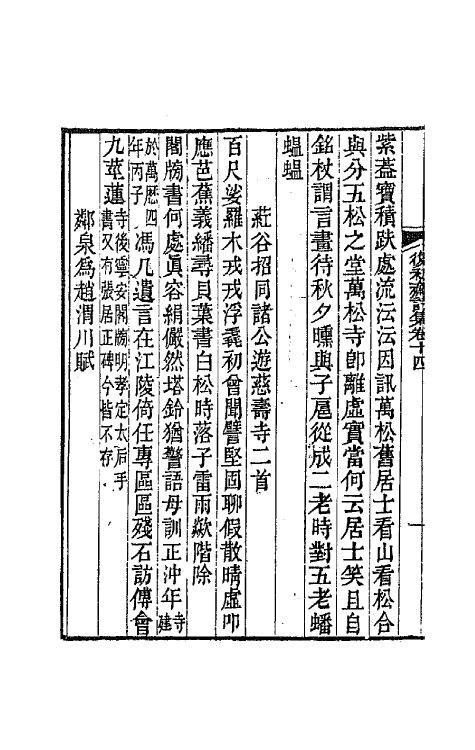 復初齋詩集卷十四
紫蓋寶積趺處流沄沄因訊萬松舊居士看山看松合
與分五松之堂萬松寺卽離虛實當何云居士笑且自
銘杖謂言畫待秋夕曛與子扈從成二老時對五老蟠
蝹蝹
莊谷招同諸公遊慈壽寺二首
百尺娑羅木戎戎浮毳初曾聞譬堅固聊假散晴虛叩
應芭蕉義繙尋貝葉書白松時落子雷雨歘階除
閣牓書何處眞容絹儼然塔鈴猶警語母訓正沖年寺建
於萬歷四年丙子馮几遺言在江陵倚任專區區殘石訪傅會
九莖蓮寺後寧安閣牓明孝定太后手書又有張居正碑今皆不存
鄰泉爲趙渭川賦